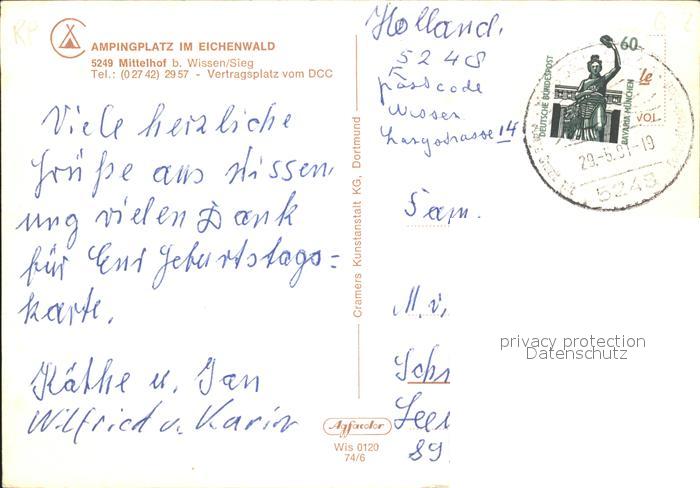 AMPINGPLATZ IM EICHENWALD
5249 Mittelhof b. Wissen/Sieg
Tel.: (0 27 42) 29 57 - Vertragsplatz vom DCC
Viele herzliche
Grüße aus Wissen,
und vielen Dank
für Eure Geburtstags=
karte.
Käthe u. Jan
Wilfried u. Karin
Cramers Kunstanstalt KG, Dortmund
Agfacolor
Wis 0120
74/6
Holland.
5248
Postcode
Wissen
14
60
DEUTSCHE BUNDESPOST
BAVARIA MÜNCHEN
le
VOL
29.-5.91-19
5248
Fam.
M. v.
Sch
Lee
89
privacy protection
Datenschutz